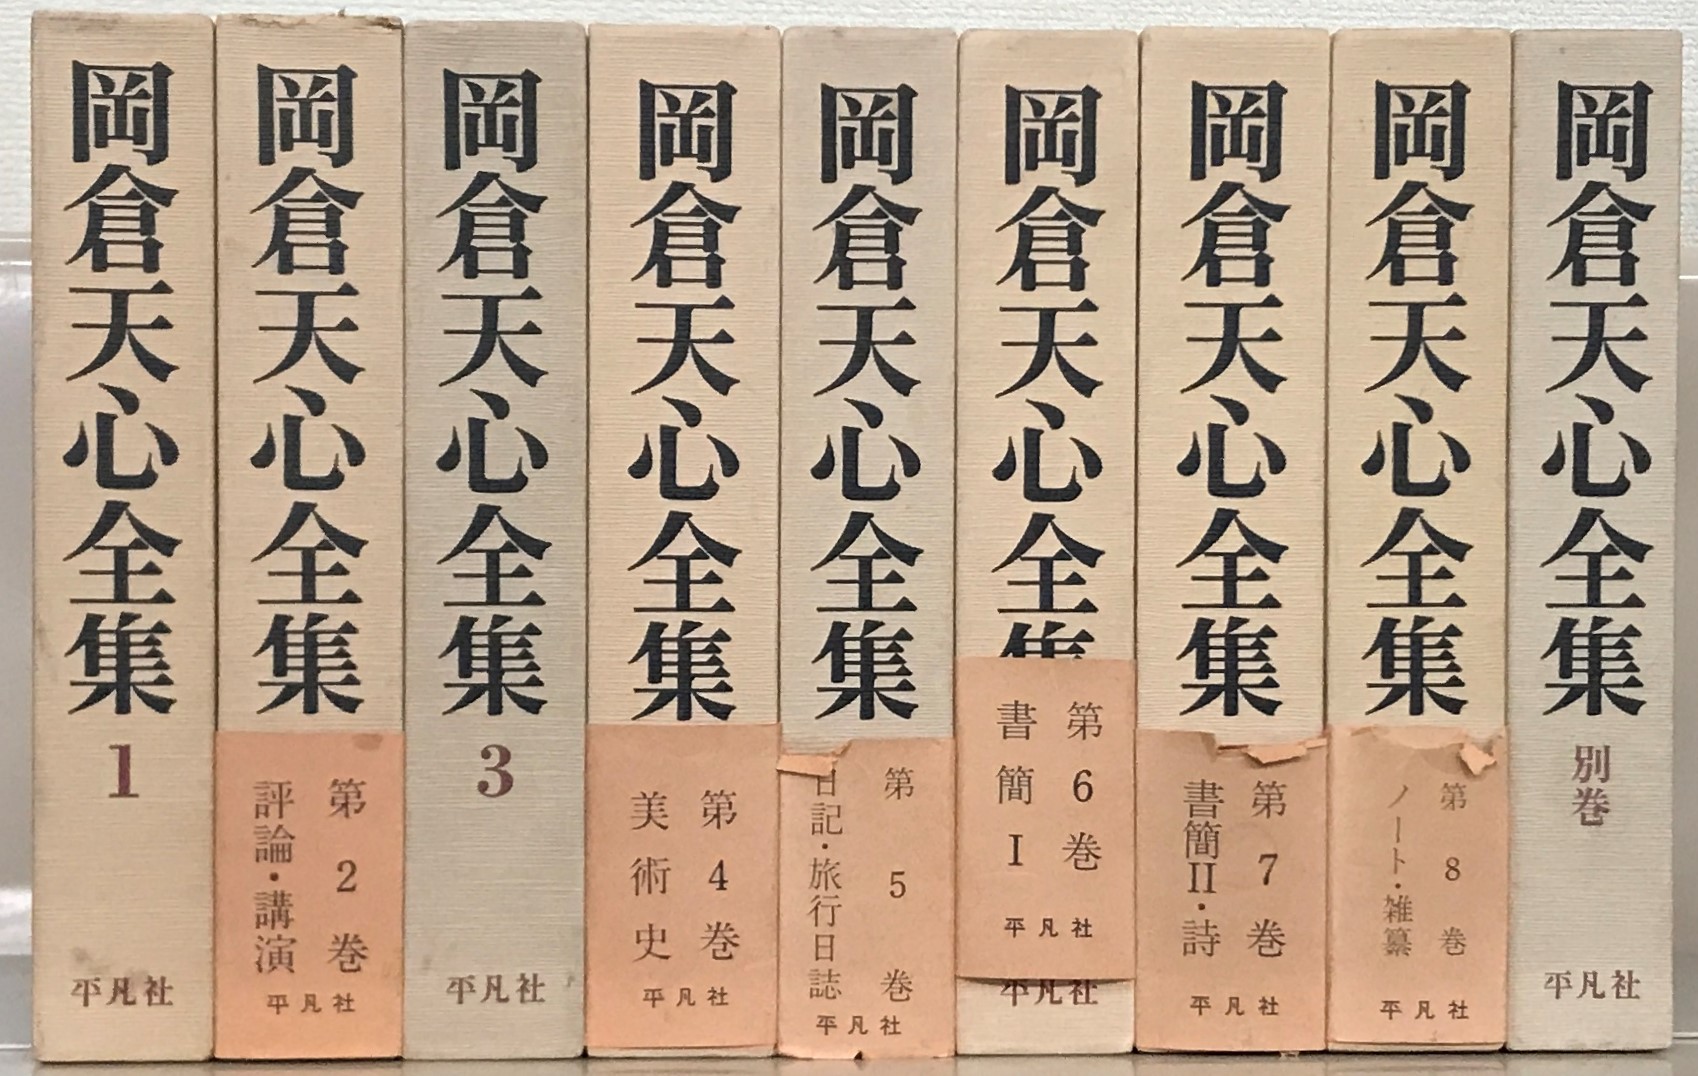 岡倉天心全集
1
平凡社
岡倉天心全集
第2巻
評論・講演
平凡社
岡倉天心全集
3
平凡社
岡倉天心全集
第4巻
美術史
平凡社
岡倉天心全集
第5巻
日記・旅行日誌
平凡社
岡倉天心全集
第6巻
書簡I
平凡社
平凡社
岡倉天心全集
第7巻
書簡II・詩
平凡社
岡倉天心全集
第8巻
ノート・雑纂
平凡社
岡倉天心全集
別巻
平凡社